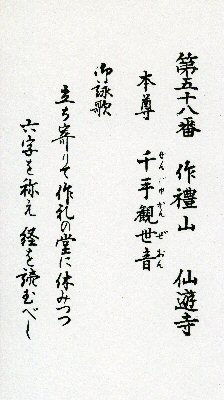 第五十八番 作禮山 仙遊寺
本尊 千手観世音
せんじゅかんぜおん
御詠歌
立ち寄りて作礼の堂に休みつつ
六字を称え経を読むべし